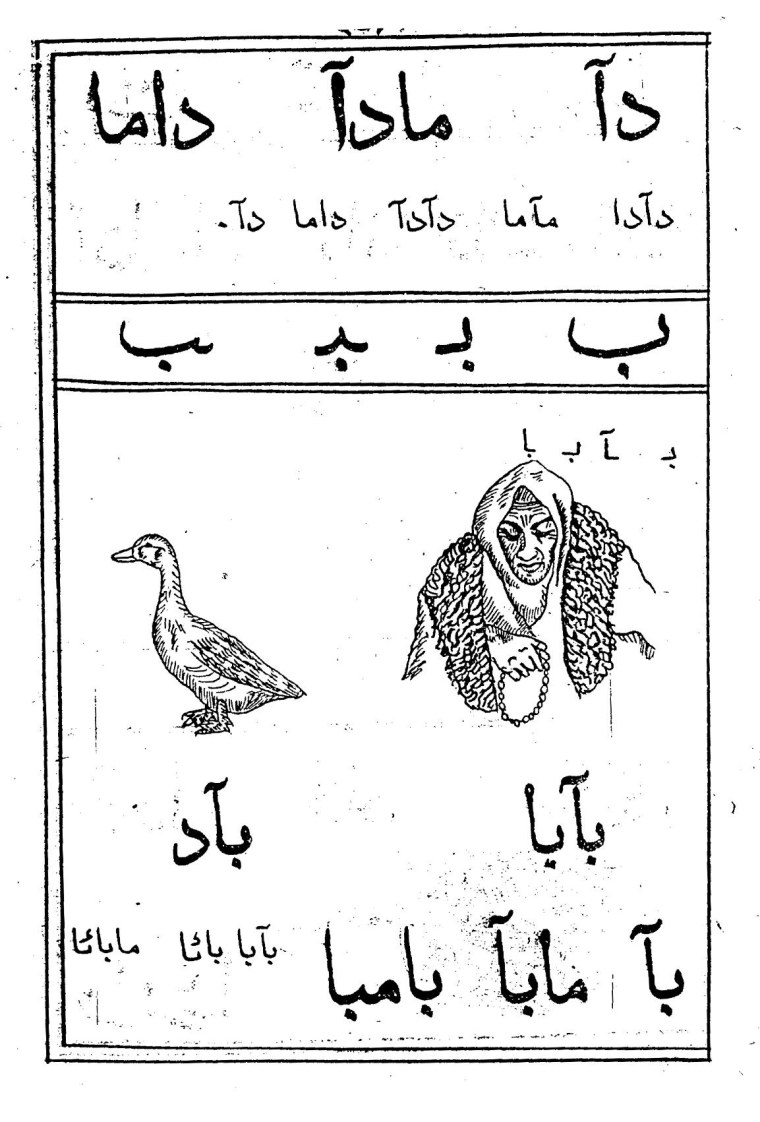 دآ مادآ داما
دآدا مآما دآدآ داما دآ.
ب بـ ـبـ ـب
بـ ـآ بـ با
بآد
بآ مابآ بامبا بآبا